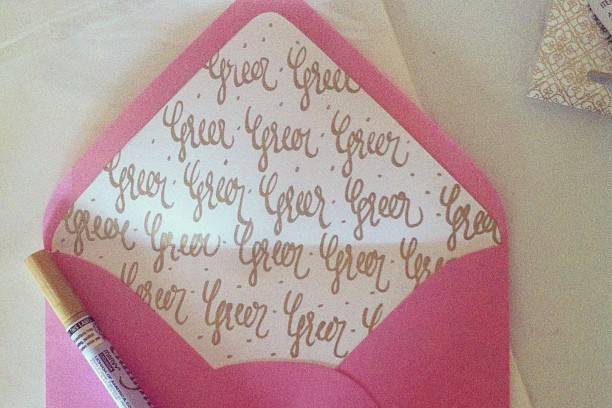 Greer Greer
Greer Greer Greer
Greer Greer Greer Greer Greer
Greer Greer Greer Greer Gr
Greer Greer Greer